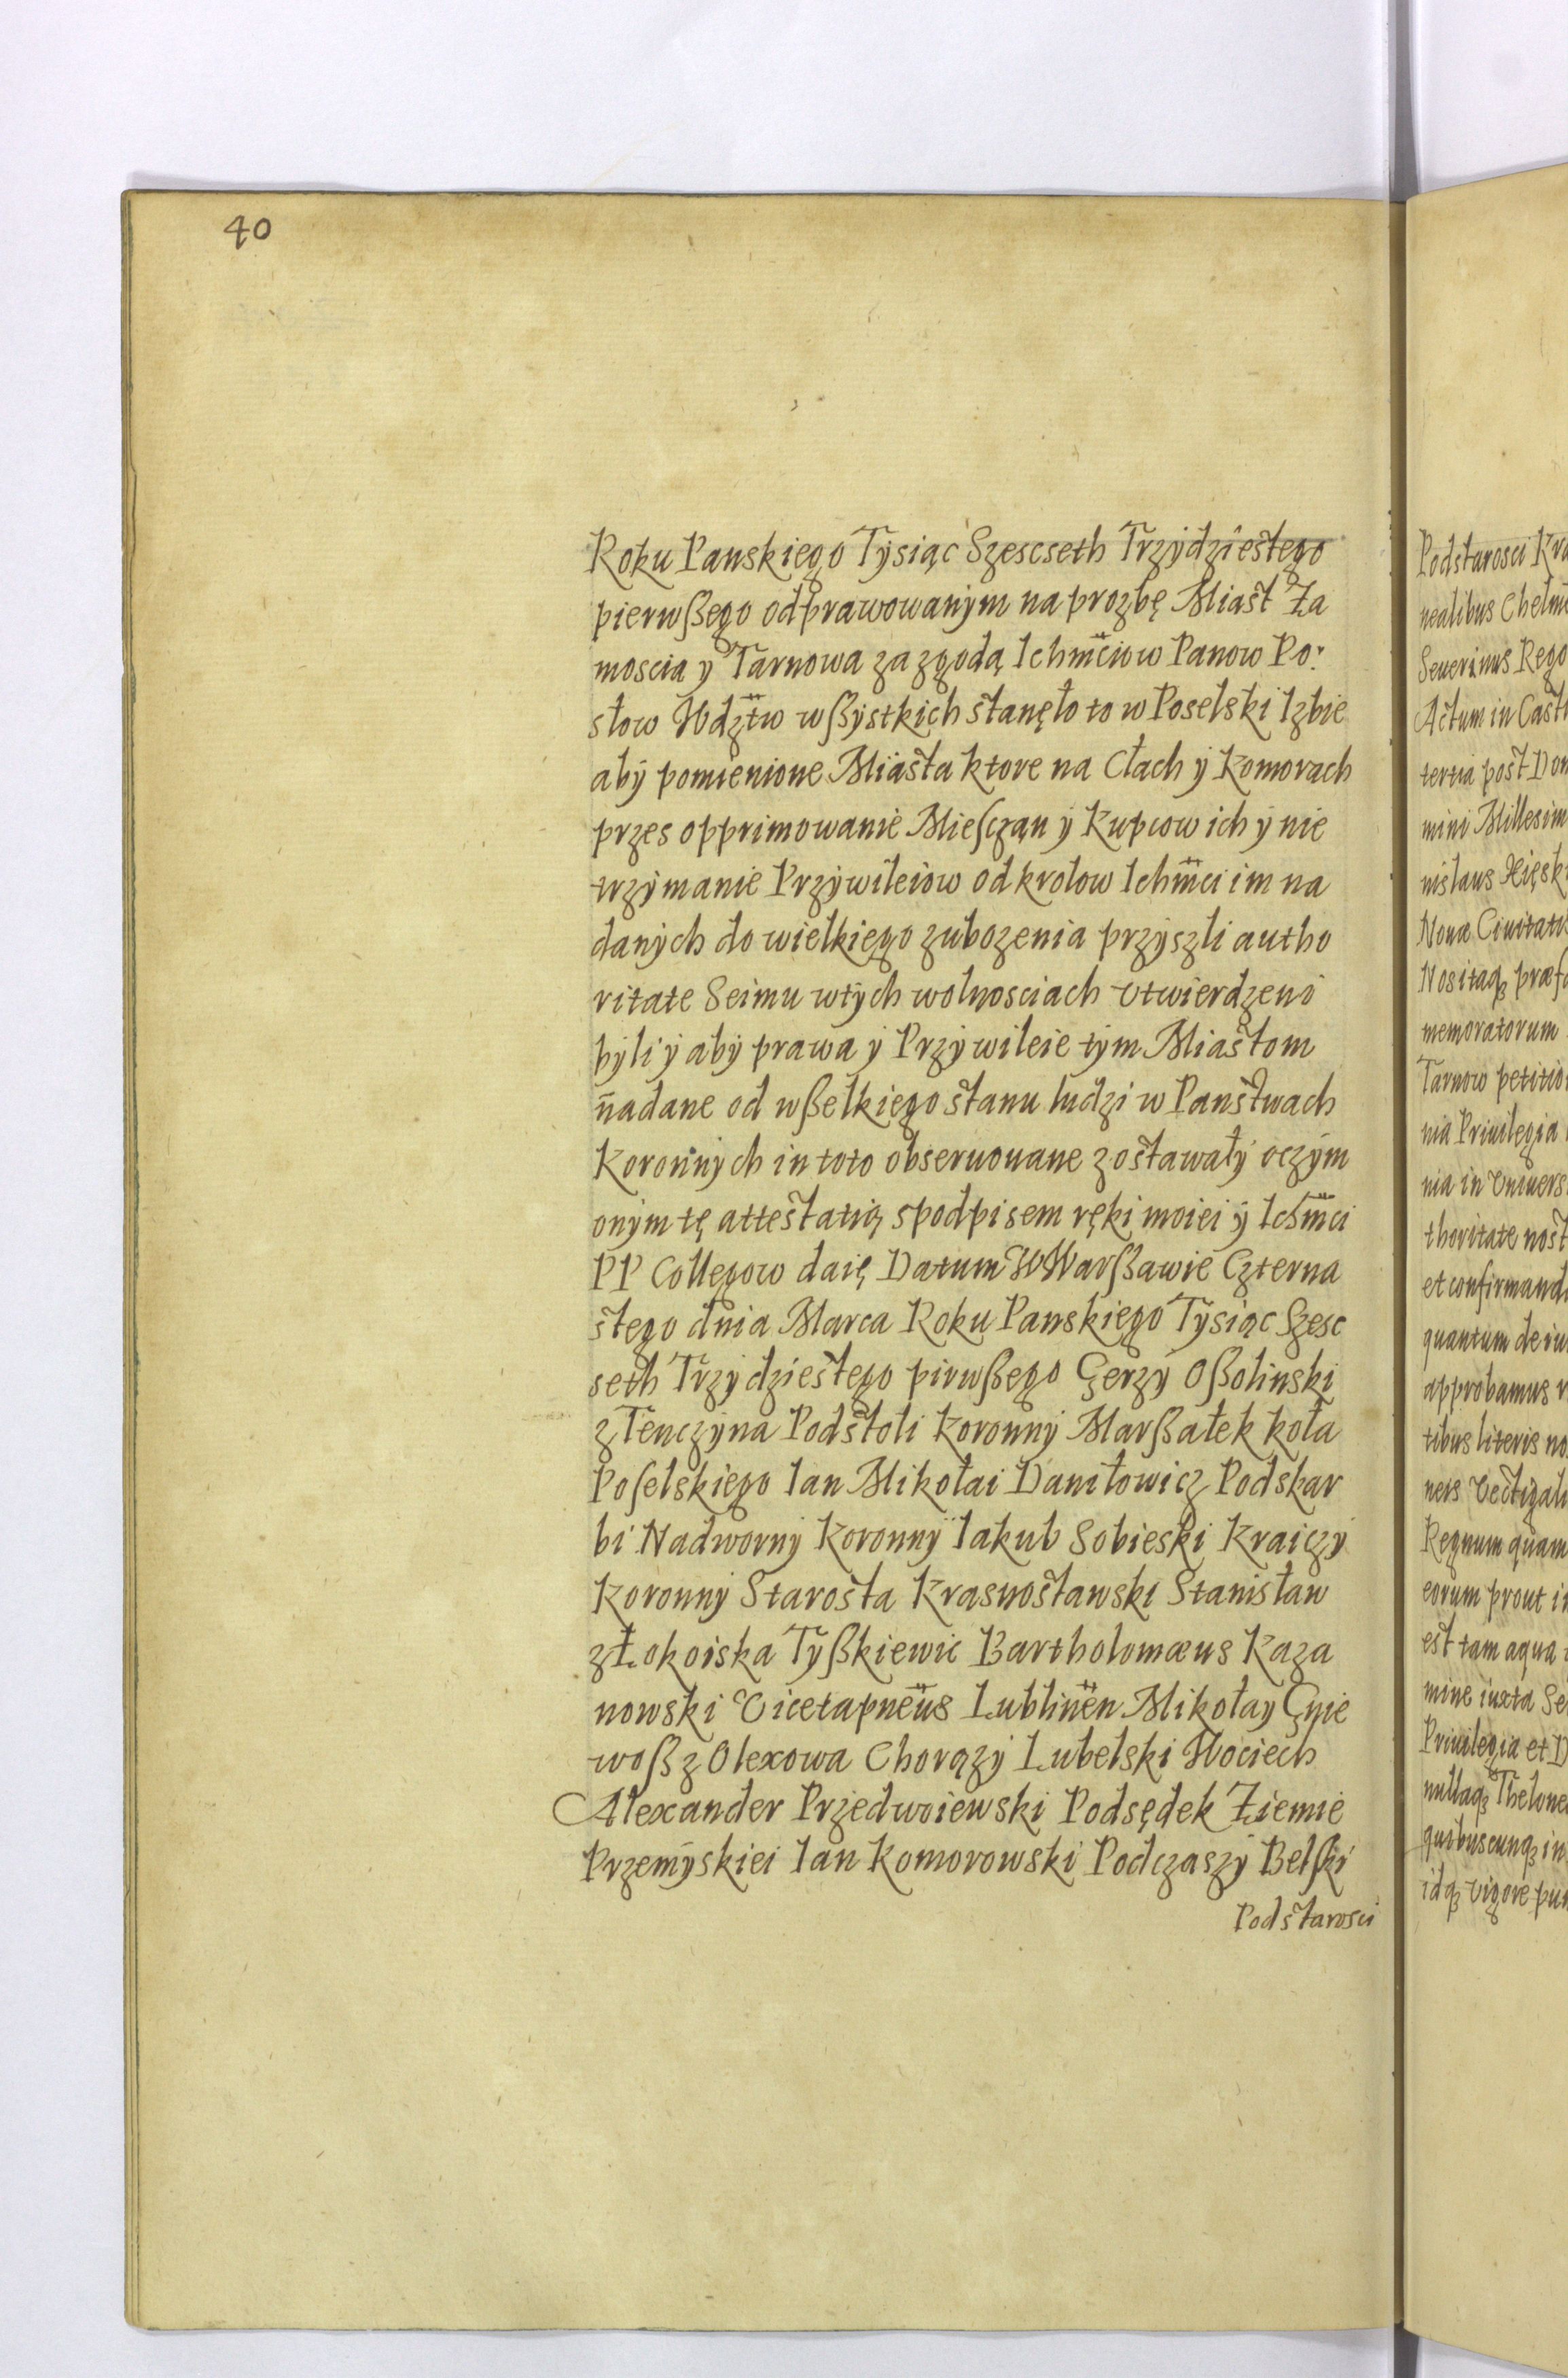 40
Roku Panskiego Tysiąc Szescseth Trzydziestego
pierwßego odprawowanym na prozbę Miast Za
moscia y Tarnowa za zgodą Ichm̃ciow Panow Po:
słow Wdztw wßystkich stanęło to w Poselski Izbie
aby pomienione Miasta ktore na Cłach y Komorach
przes opprimowanie Miesczan y Kupcow ich y nie
trzymanie Przywileiow od krolow Ichm̃ci im na
danych do wielkiego zubozenia przyszli autho
ritate Seimu wtych wolnosciach vtwierdzeni
byli y aby prawa y Przywileie tym Miastom
nadane od wßelkiego stanu ludzi w Panstwach
Koronnych in toto obseruouane zostawały oczym
onym tę attestatią spodpisem ręki moiei y Ichm̃ci
PP Collegow daię Datum W Warßawie Czterna
stego dnia Marca Roku Panskiego Tysiąc Szesc
seth Trzydziestego pirwßego Gerzy Oßolinski
z Tenczyna Podstoli Koronny Marßałek koła
Poselskiego Ian Mikołai Daniłowicz Podskar
bi Nadworny Koronny Iakub Sobieski Kraiczy
Koronny Starosta Krasnostawski Stanisław
z Łokoiska Tyßkiewic Bartholomæus Kaza
nowski Vicetapneus Lublinen Mikołay Gnie
woß z Olexowa Chorązy Lubelski Wociech
Alexander Przedwoiewski Podsędek Ziemie
Przemyskiei Ian Komorowski Podczaszy Belski
Podstarosci
Podstarosci Kra
nealibus Chelm
Seuerinus Rego
Actum in Cast
tertia post Dom
mini Millesim
nislaus
Nouæ Ciuitatis
Nos itaq₃ præf
memoratorum
Tarnow petitio
nia Priuilegia
nia in Vniuers
thoritate nost
et confirmand
quantum de iu
approbamus r
tibus literis no
ners Vectigali
Regnum quam
eorum prout i
est tam aqua
mine iuxta Se
Priuilegia et D
nullaq₃ Thelone
quibuscunq₃ in
idq₃ vigore pu